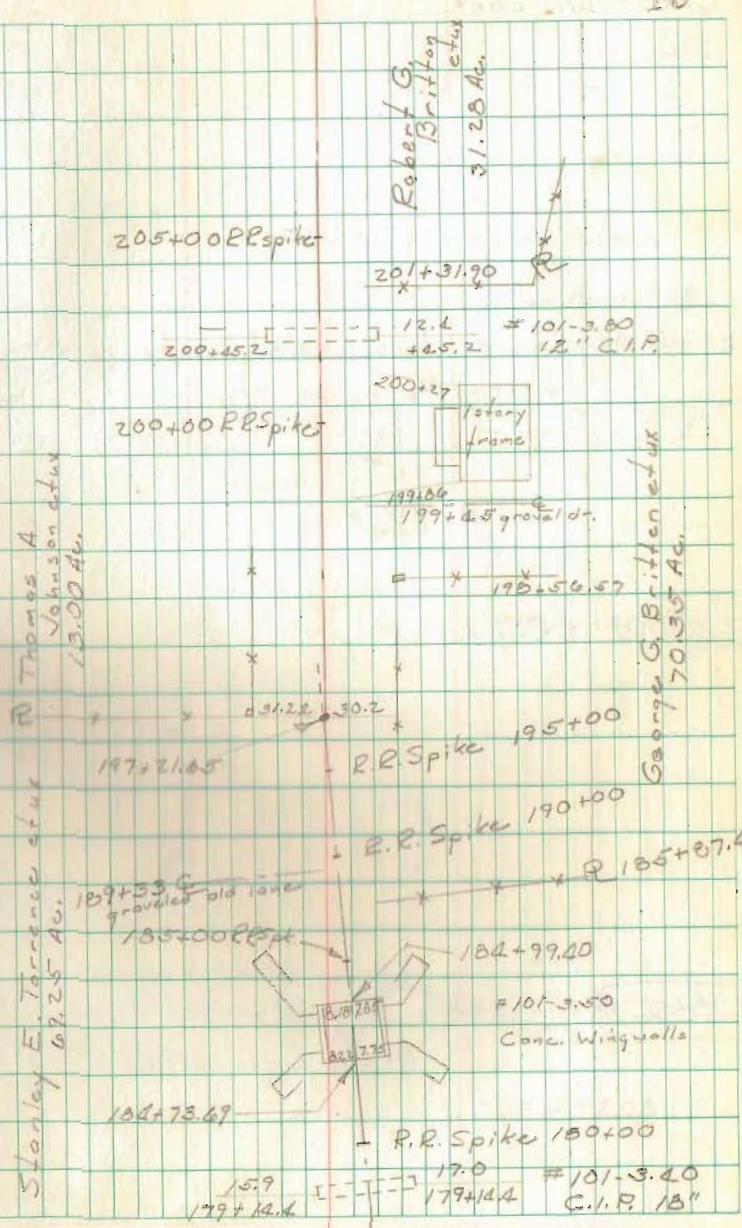 Robert G.
Britton
etux
31.28 Ac.
205+00 RR spike
201+31.90
R
200+45.2
12.4
+45.2
# 101-3.80
12" C.I.P.
200+27
1 story
frame
200+00 RR Spike
199+06
199+45 gravel dr.
Thomas A.
Johnson etux
13.00 Ac.
George G. Britten et ux
70.35 Ac.
R
31.22
30.2
197+21.65
R.R. Spike 195+00
R.R. Spike 190+00
189+33
graveled old lane
R 185+87.4
185+00 RR Spk.
184+99.40
7.85
# 101-3.50
Conc. Wingwalls
8.22 7.75
Stanley E. Torrence etux
69.25 Ac.
184+73.69
R.R. Spike 180+00
15.9
179+14.4
17.0
179+14.4
# 101-3.40
C.I.P. 18"